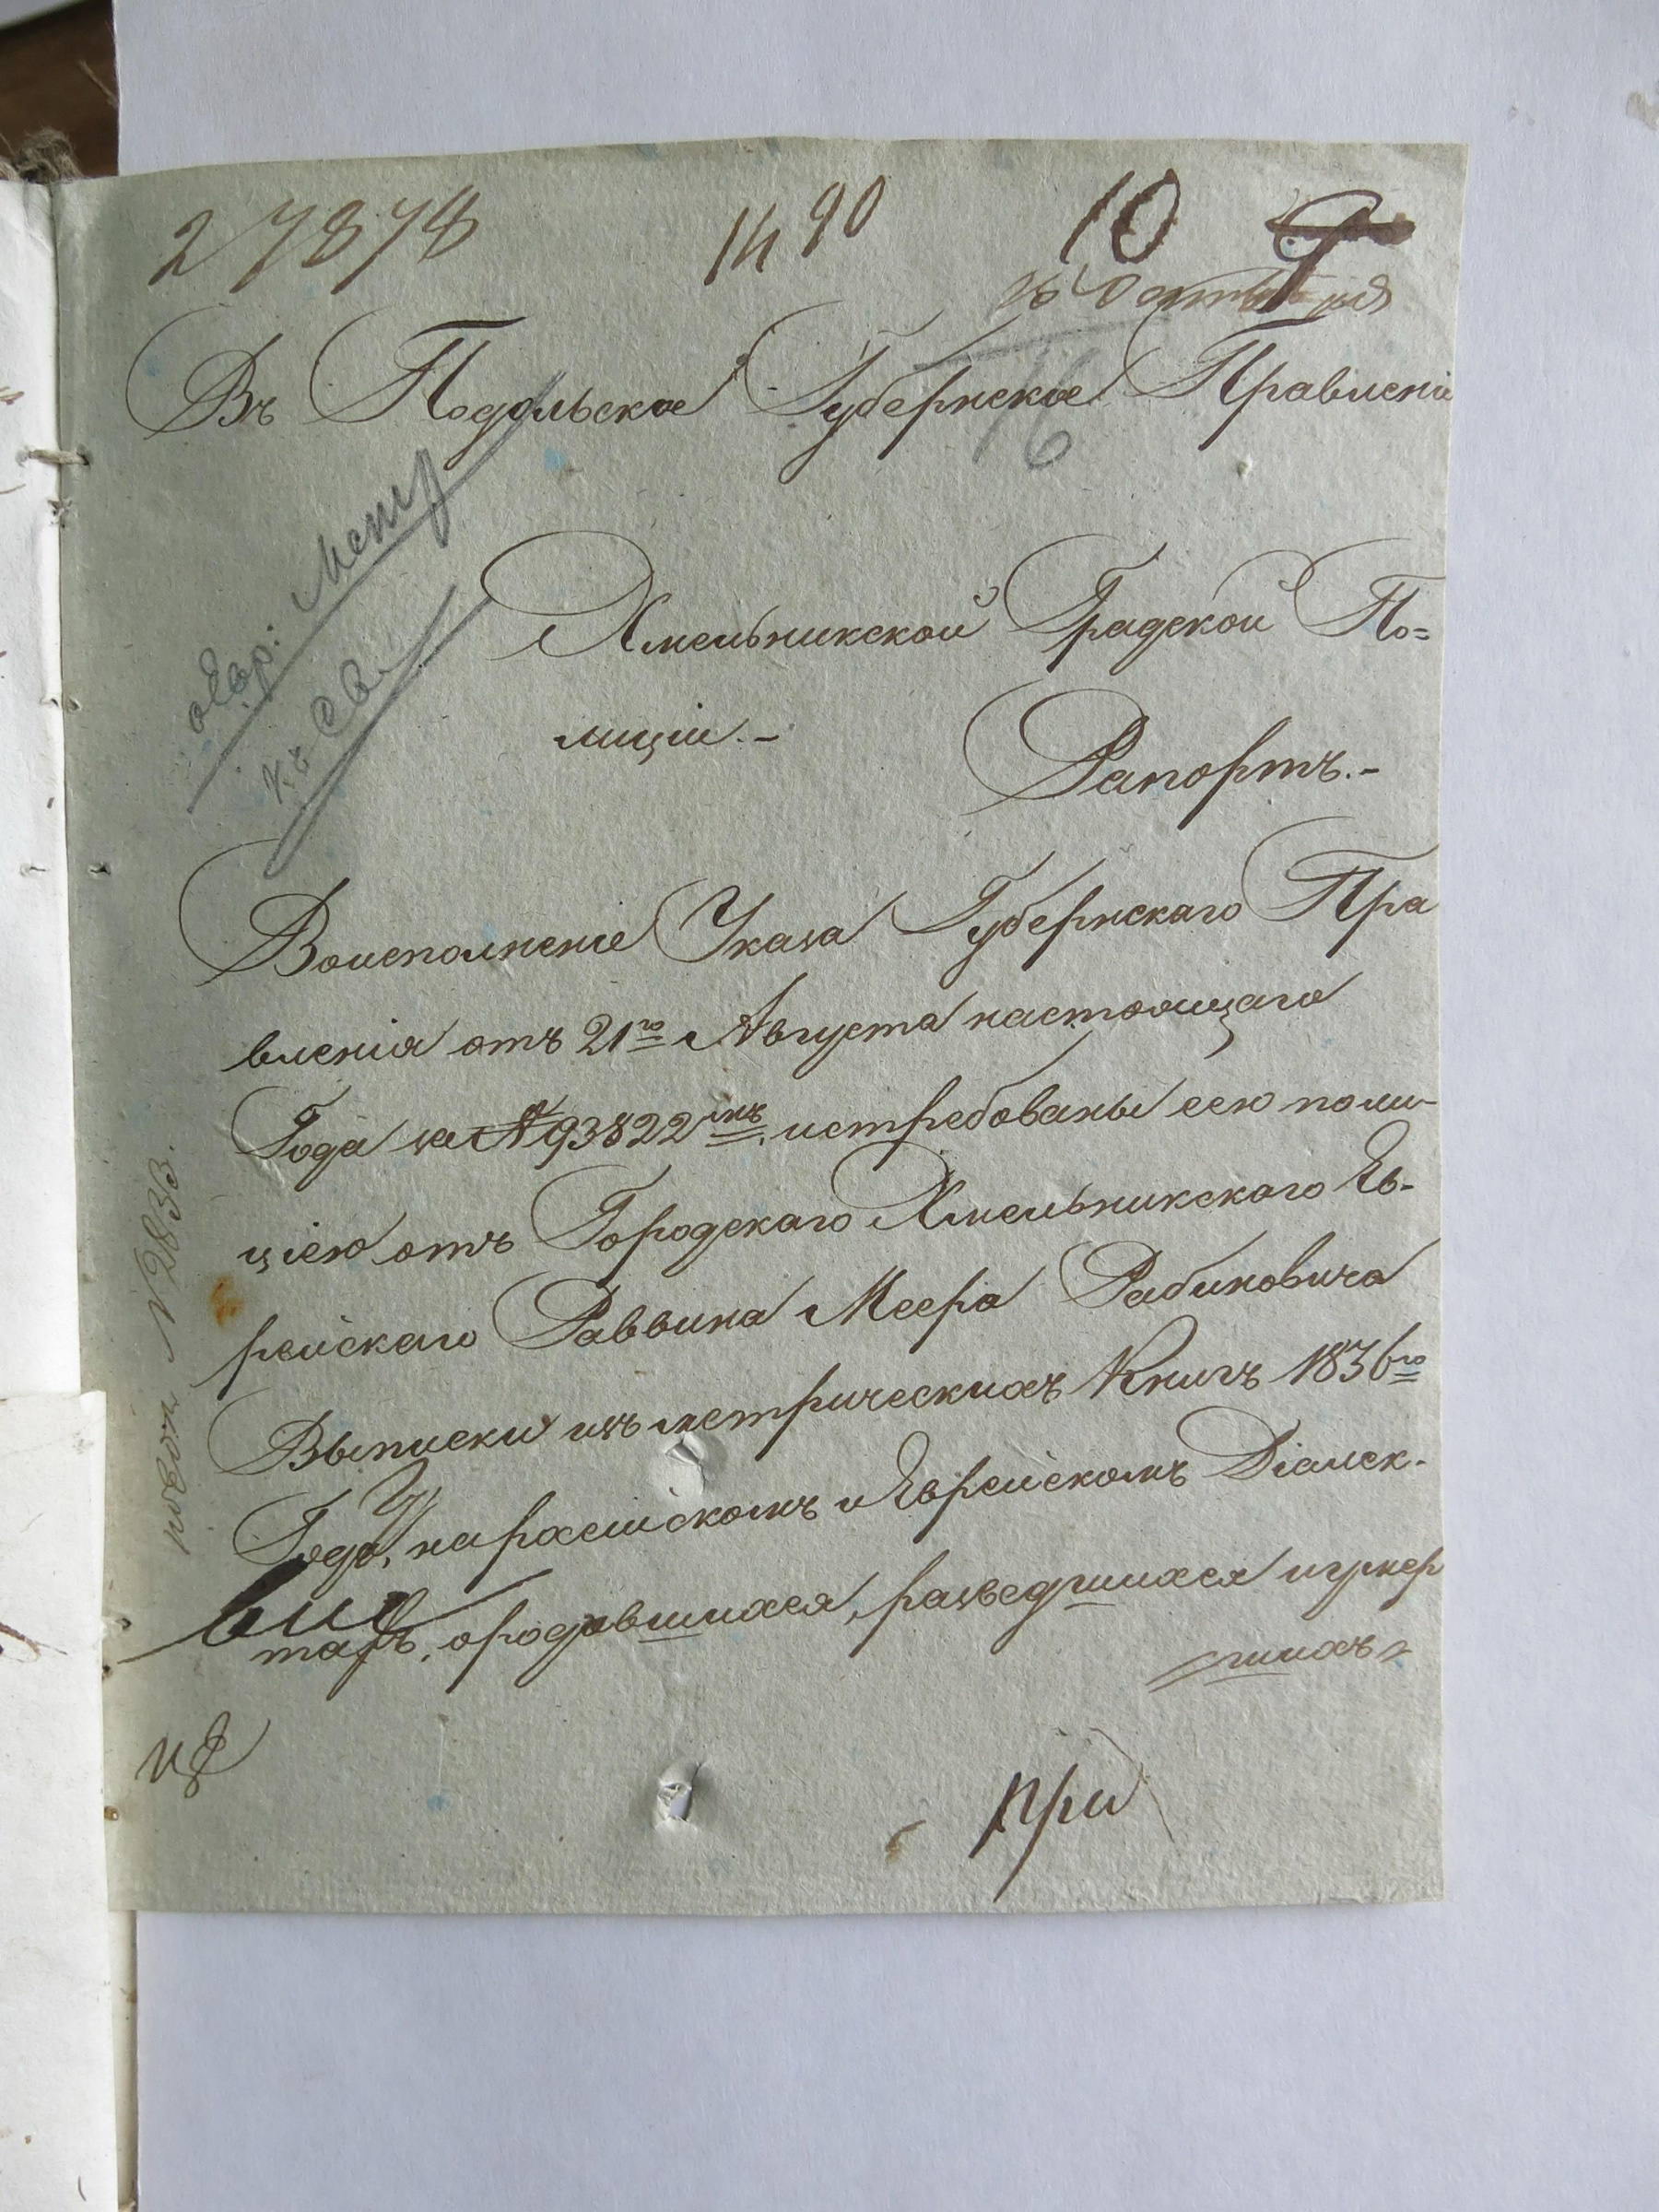 27878 1490 10 9
Въ Подольское Губернское Правленіе
16
о Евр: Метр
къ
Хмельникской Градской По=
лиціи.-
Рапортъ.-
Воисполненіе Указа Губернскаго Пра
вленія отъ 21го Августа настоящаго
Года за №93822мъ. истребованы сею поли-
ціею отъ Городскаго Хмельникскаго Ев-
рейскаго Раввина Меера Рабиновича
Выписки изъ метрическихъ Книгъ 1836го
Года, на расейскомъ и Еврейскомъ Діалек-
тахъ, ородовшихся, разведшихся иумер
шихъ
при